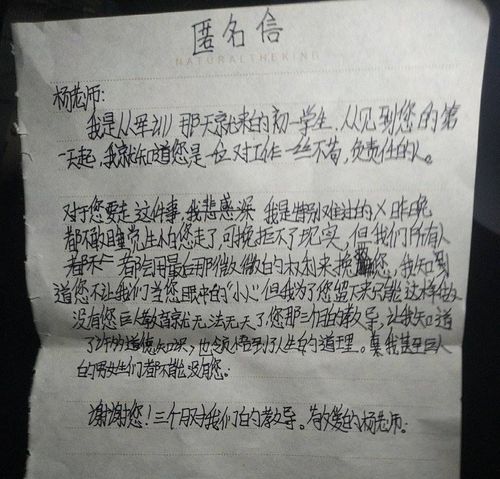 匿名信
NATURALTHEKING
杨老师:
我是从军训那天就来的初一学生,从见到您的第
一天起,我就知道您是一位对工作一丝不苟,负责任的人。
对于您要走这件事,我悲感深 我是特别难过的 昨晚
都不敢睡觉生怕您走了,可挽拒不了现实,但我们所有人
都 都会用最后那微微的权利来挽您,我知到
道您不让我们当您眼中的“小人”但我为了您留下来只能这样做
没有您 教育就无法无天了您那三个月的教导,让我知道
了许多道德知识,也领悟到好人生的道理。真我甚至
的男女生们都不能没有您.
谢谢您!三个月对我们的教导。敬爱的杨老师.